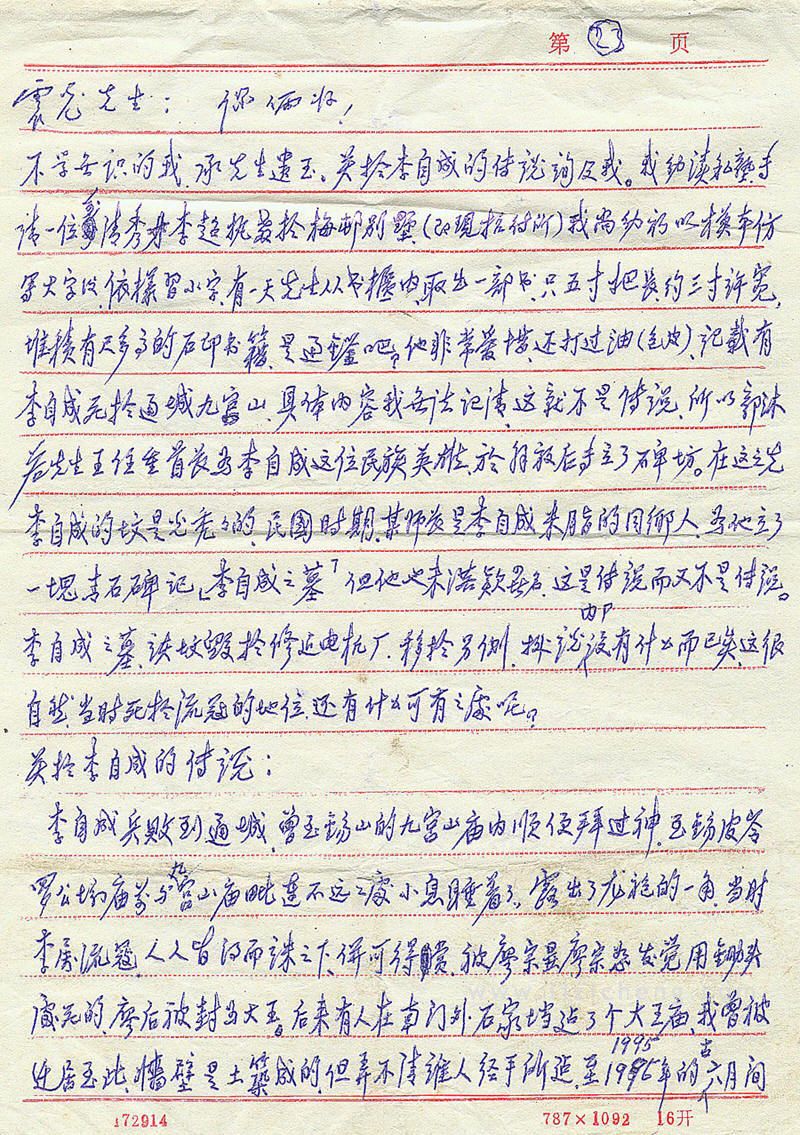 第 23 页
霞光先生: 你俩好!
不学无识的我,承先生遗玉。关於李自成的传说询及我。我幼读私塾时
请一位清秀才李超执教於梅邨别墅(即现招待所)我尚幼初以模本仿
写大字后,依样习小字,有一天先生从书柜内,取出一部书,只五寸把长约三寸许宽,
堆积有尺多高的石印书籍,是通鉴吧?他非常爱惜,还打过油(包皮),记载有
李自成死於通城九宫山,具体内容我无法记清,这就不是传说,所以郭沫
若先生王任重首长为李自成这位民族英雄,於解放后才立了碑坊。在这之先
李自成的坟是光秃々的,民國时期,某师长是李自成米脂的同乡人,为他立了
一塊青石碑记「李自成之墓」但他也未落款署名,这是传说而又不是传说。
李自成之墓,该坟毁於修造电机厂,移於另侧,据说内部没有什么而已矣,这很
自然,当时死於流寇的地位,还有什么可有之处呢?
关於李自成的传说:
李自成兵败到通城,曾至锡山的九宫山庙内顺便拜过神,至锡皮岺
罗公坳庙前与九宫山庙毗连不远之处小息睡着了,露出了龙袍的一角,当时
李属流寇,人人皆得而诛之下,併可得赏,被廖宗昙廖宗恕发觉用锄头
处死的,廖后被封为大王,后来有人在南门外石家垱造了个大王庙,我曾被
迁居至此,墙壁是土築成的,但弄不清谁人经手所造,至1995年的古六月间
1995
172914
787×1092 16开